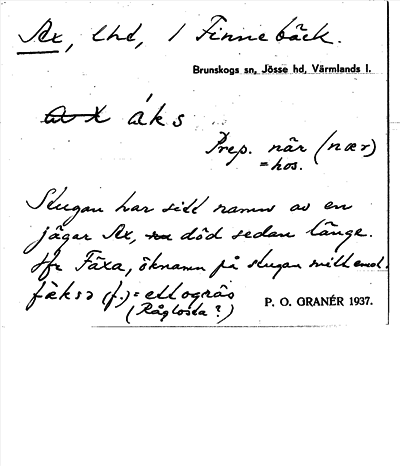 Ax, lht, 1 Finnebäck.
Brunskogs sn, Jösse hd, Värmlands l.
áks
Prep. när (nær)
= hos.
Stugan har sitt namn av en
jägar Ax, död sedan länge.
Jfr Fäxa, öknamn på stugan mitt emot.
fæksə (f.) = ett ogräs
(Råglosta?)
P. O. GRANÉR 1937.